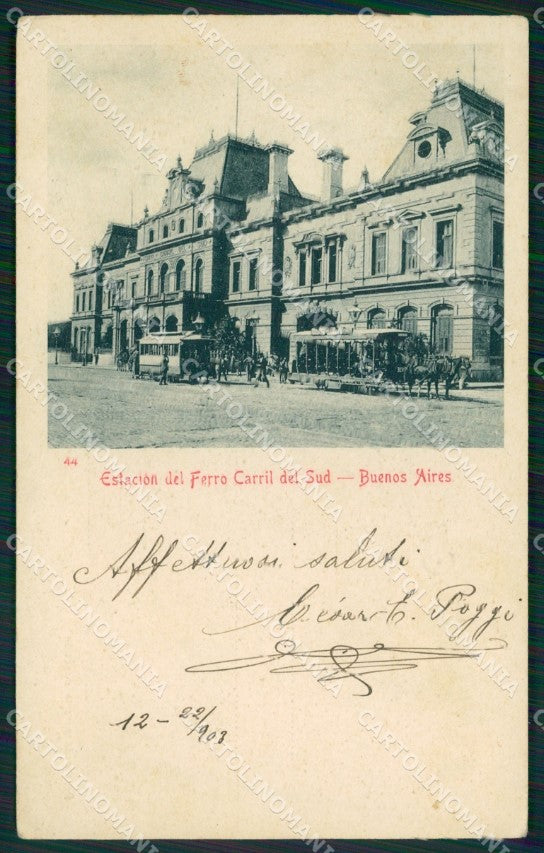 44
Estación del Ferro Carril del Sud — Buenos Aires
Affettuosi saluti
César E. Poggi
12 - 22/903
CARTOLINOMANIA